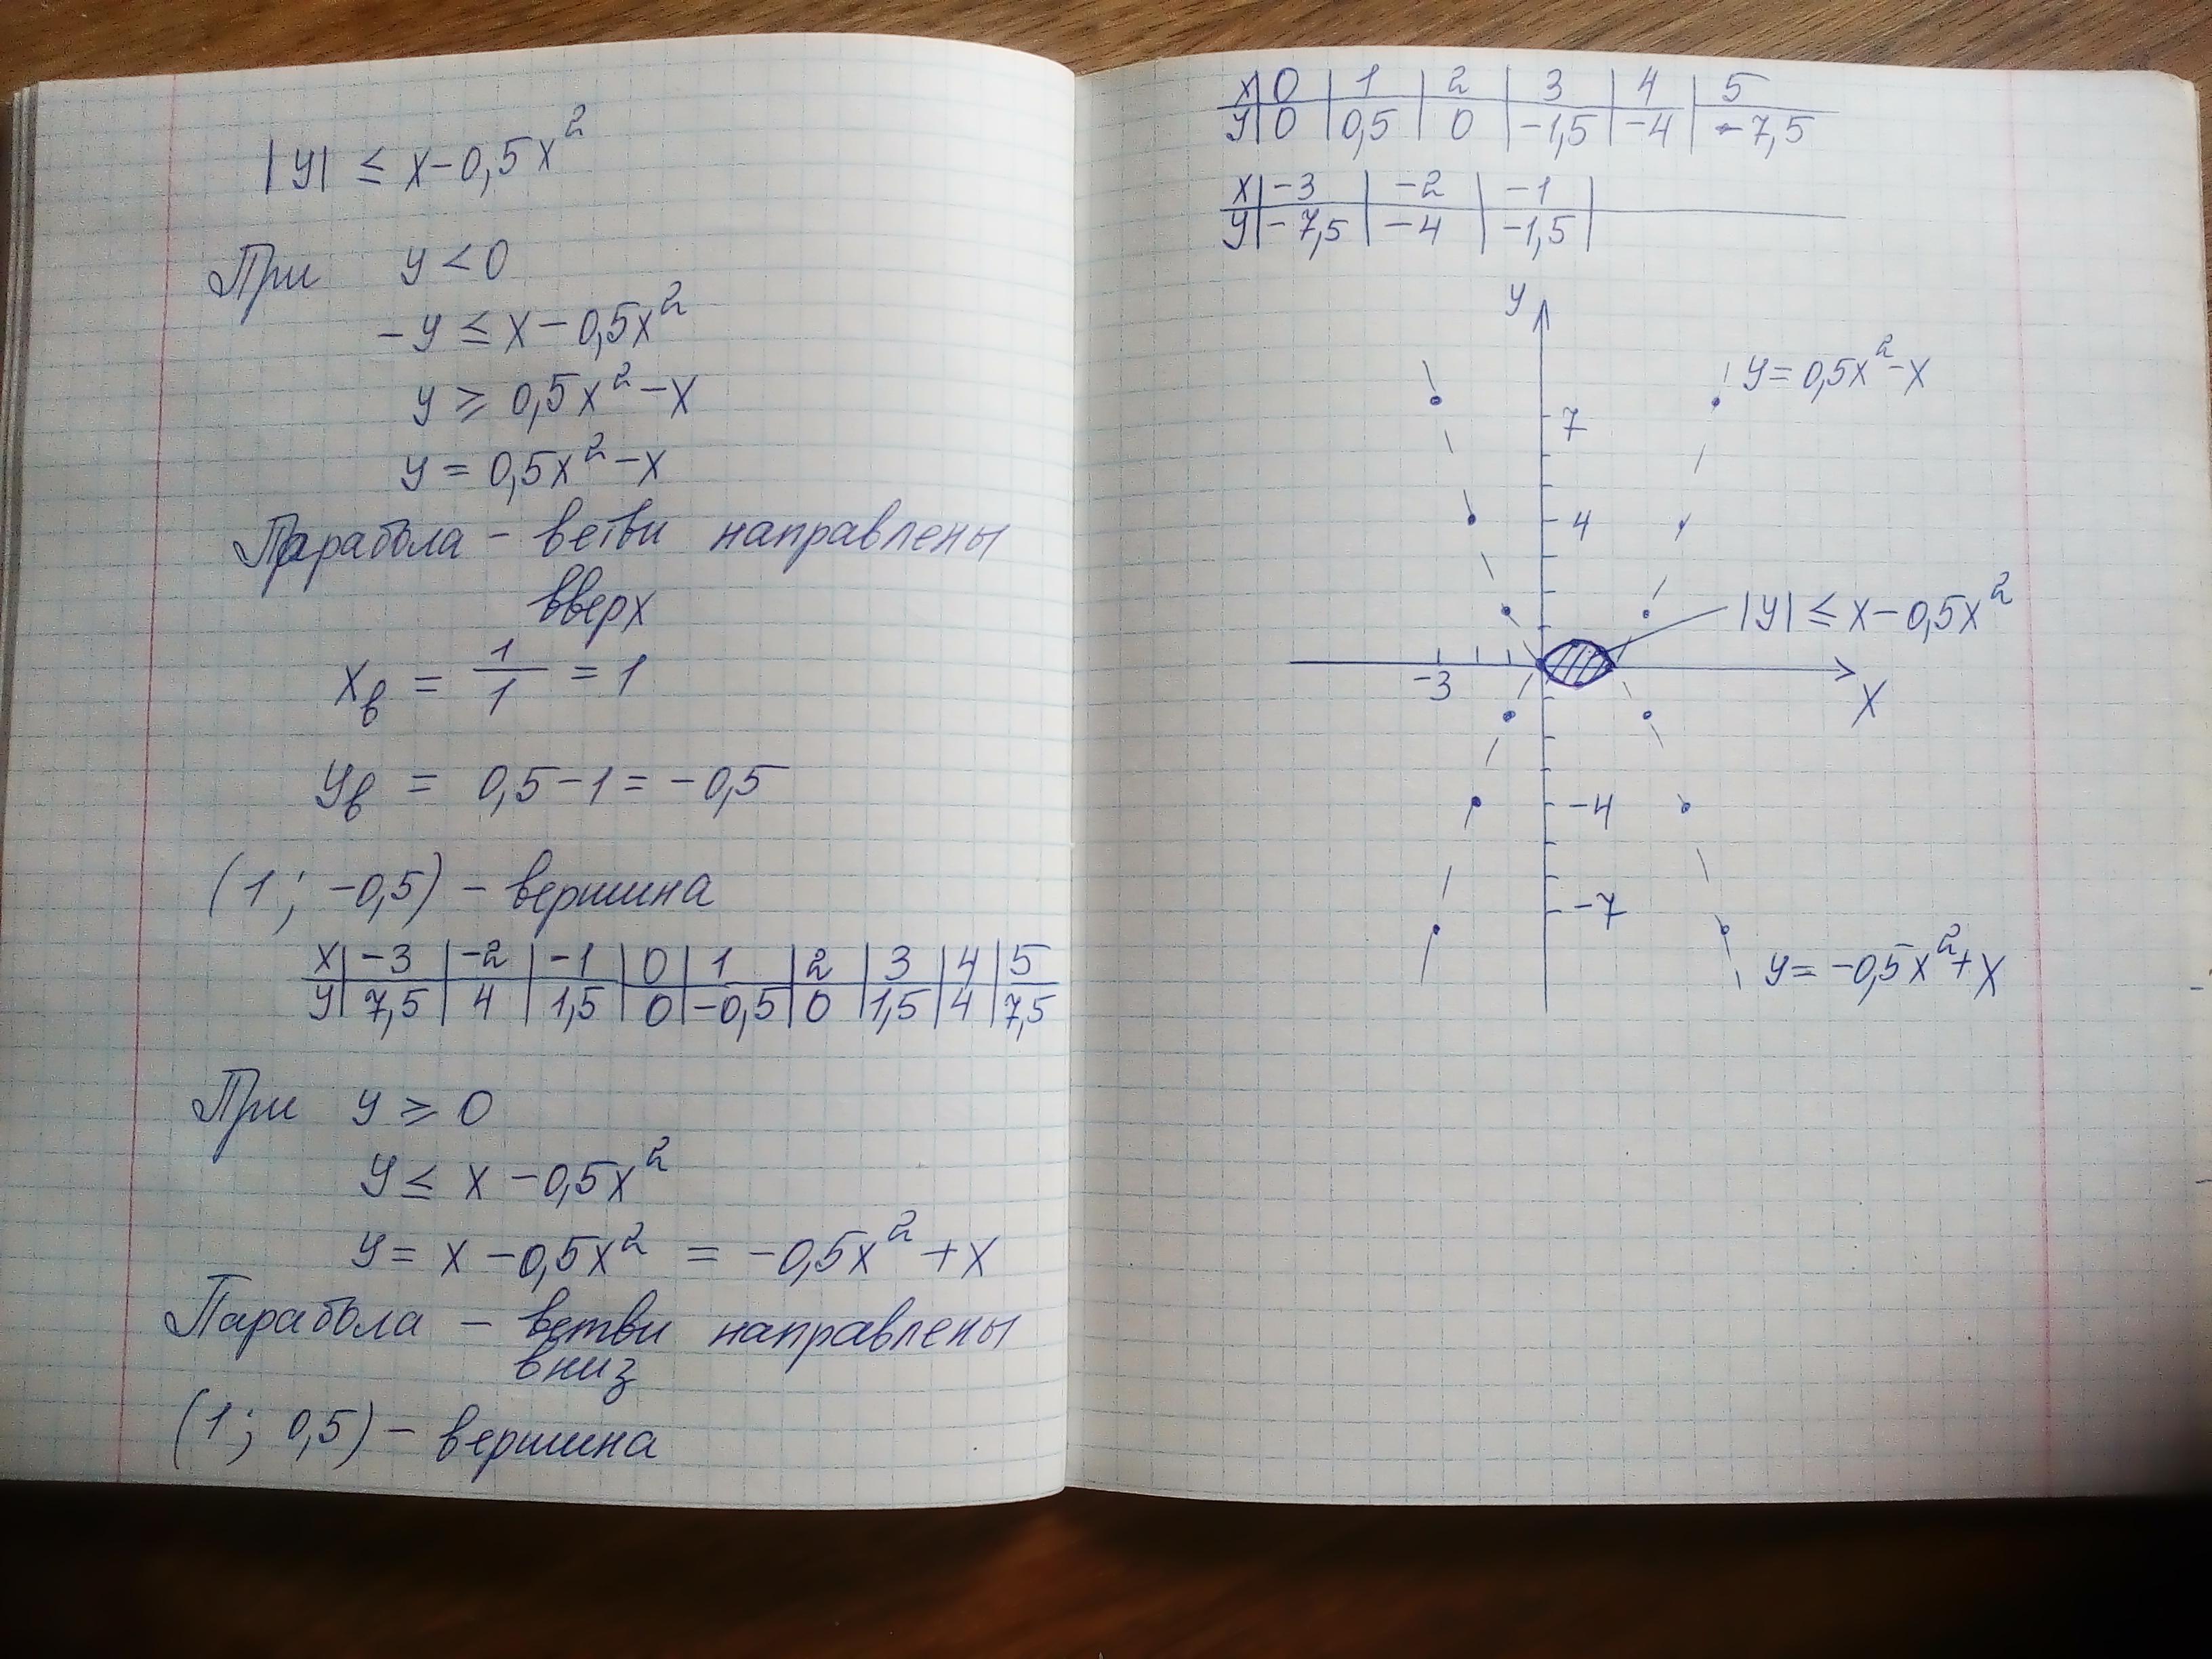 |y| ≤ x-0,5x²
При y < 0
-y ≤ x - 0,5x²
y ≥ 0,5x² - x
y = 0,5x² - x
Парабола - ветви направлены
вверх
xв = 1/1 = 1
yв = 0,5 - 1 = -0,5
(1; -0,5) - вершина
x | -3 | -2 | -1 | 0 | 1 | 2 | 3 | 4 | 5
y | 7,5 | 4 | 1,5 | 0 | -0,5 | 0 | 1,5 | 4 | 7,5
При y ≥ 0
y ≤ x - 0,5x²
y = x - 0,5x² = -0,5x² + x
Парабола - ветви направлены
вниз
(1; 0,5) - вершина
x | 0 | 1 | 2 | 3 | 4 | 5
y | 0 | 0,5 | 0 | -1,5 | -4 | -7,5
x | -3 | -2 | -1 |
y | -7,5 | -4 | -1,5 |
y
y = 0,5x² - x
7
4
|y| ≤ x - 0,5x²
-3
x
-4
-7
y = -0,5x² + x